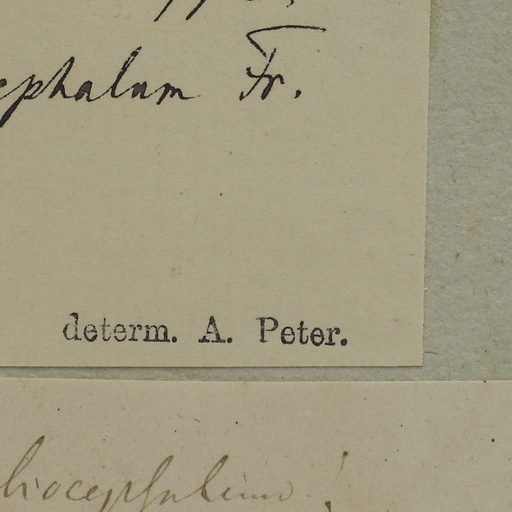 ephalum Fr.
determ. A. Peter.
liocephalum!